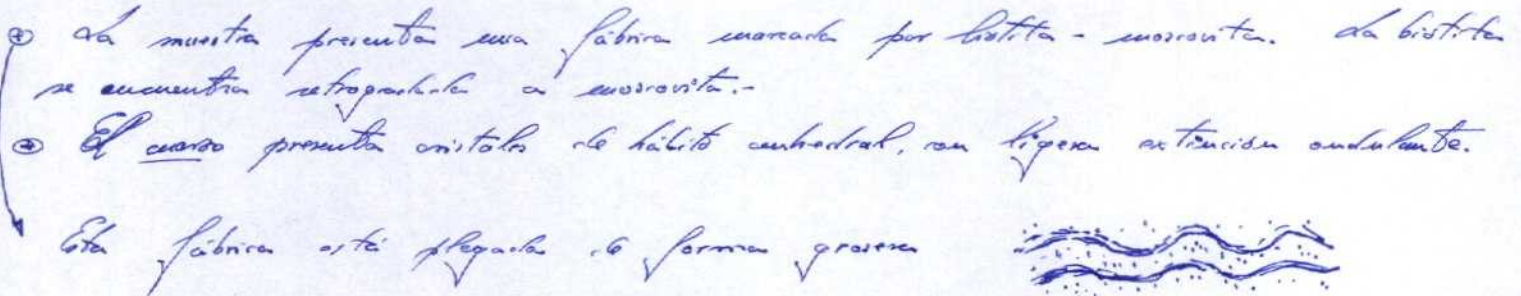 La muestra presenta una fábrica marcada por biotita - moscovita. La biotita
se encuentra retrogradada a moscovita.-
El cuarzo presenta cristales de hábito anhedral, con ligera extinción ondulante.
Esta fábrica está plegada de forma grosera